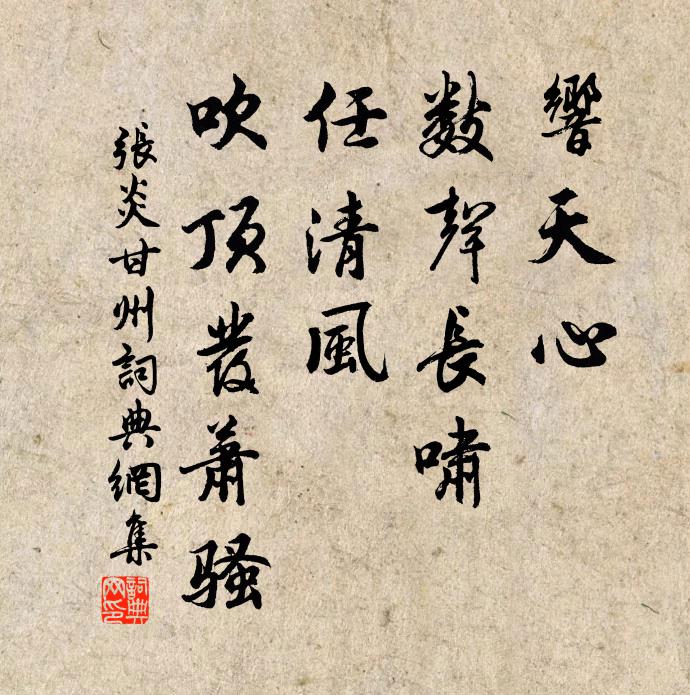 響天心
數聲長嘯
任清風
吹頂發蕭騷
張炎甘州詞典網集
詞典網印